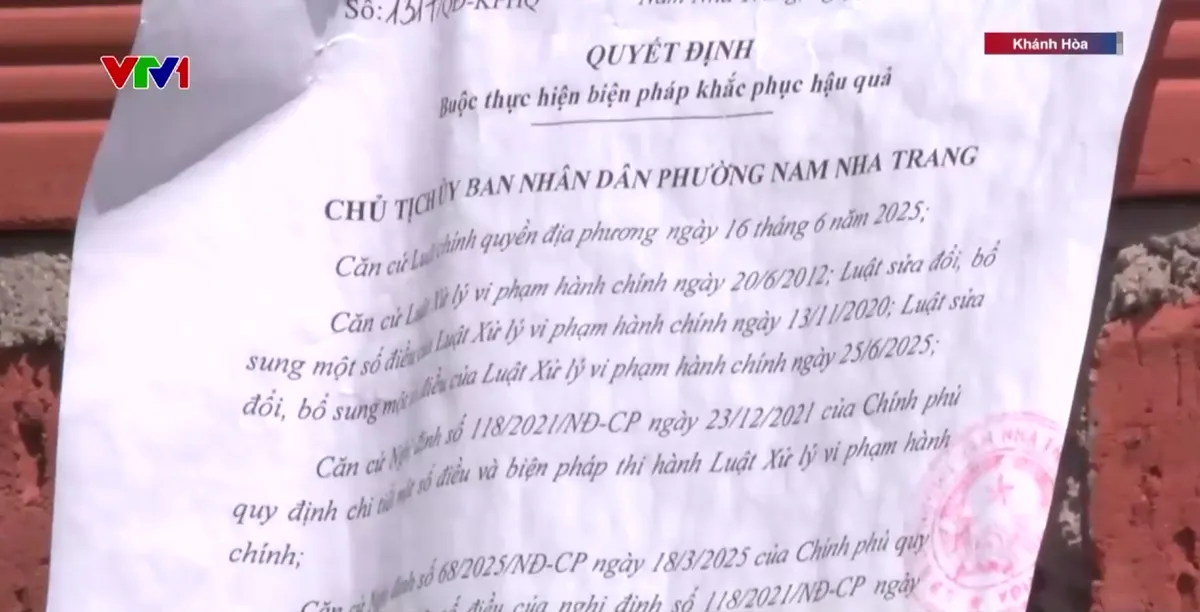 VTV1
Khánh Hòa
Số:
QUYẾT ĐỊNH
Buộc thực hiện biện pháp khắc phục hậu quả
CHỦ TỊCH ỦY BAN NHÂN DÂN PHƯỜNG NAM NHA TRANG
Căn cứ Luật chính quyền địa phương ngày 16 tháng 6 năm 2025;
Căn cứ Luật Xử lý vi phạm hành chính ngày 20/6/2012; Luật sửa đổi, bổ
sung một số điều của Luật Xử lý vi phạm hành chính ngày 13/11/2020; Luật sửa
đổi, bổ sung một điều của Luật Xử lý vi phạm hành chính ngày 25/6/2025;
Căn cứ Nghị định số 118/2021/NĐ-CP ngày 23/12/2021 của Chính phủ
quy định chi tiết một số điều và biện pháp thi hành Luật Xử lý vi phạm hành
chính;
Căn cứ Nghị định số 68/2025/NĐ-CP ngày 18/3/2025 của Chính phủ quy
số điều của nghị định số 118/2021/NĐ-CP ngày